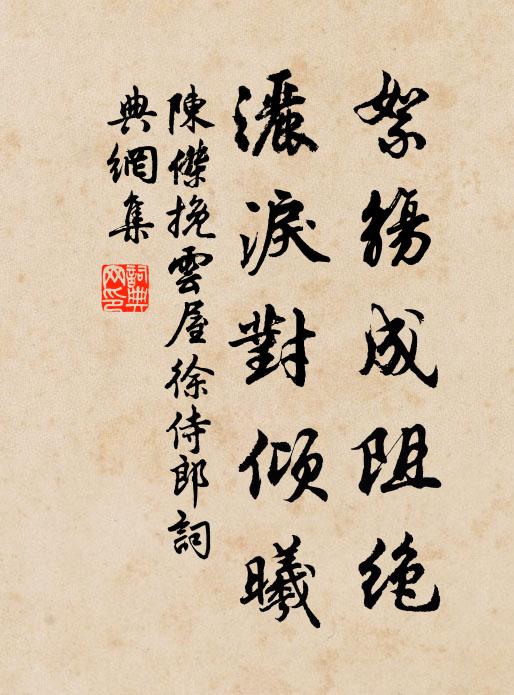 絮觴成阻絶
灑淚對傾曦
陳傑挽雲屋徐侍郎詞
典網集
詞典網印